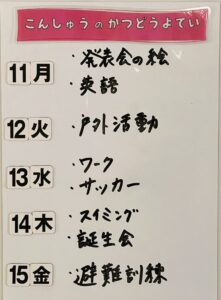 こんしゅうのかつどうよてい
11月 ・発表会の絵
・英語
12火 ・戸外活動
13水 ・ワーク
・サッカー
14木 ・スイミング
・誕生会
15金 ・避難訓練